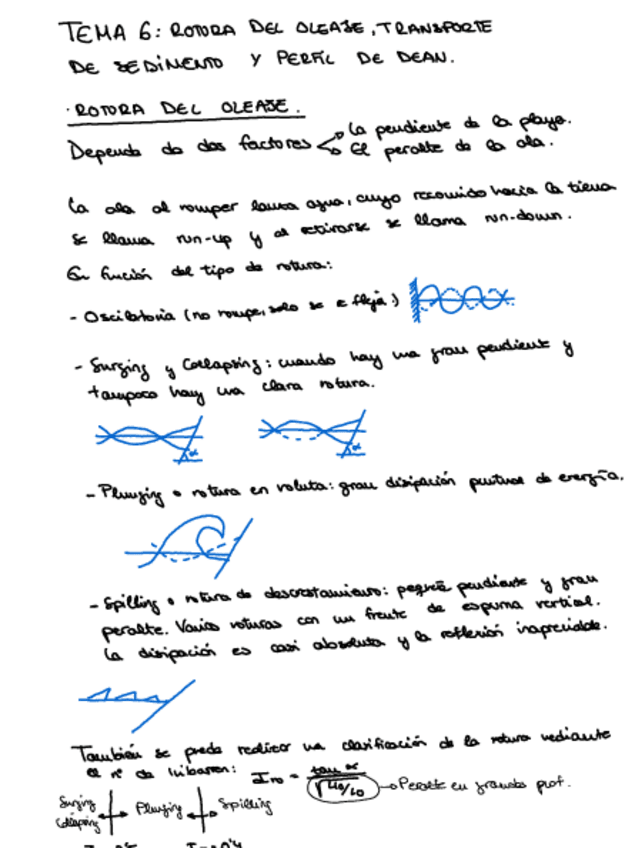 TEMA 6: ROTURA DEL OLEAJE, TRANSPORTE
DE SEDIMENTO Y PERFIL DE DEAN.
· ROTURA DEL OLEAJE.
Depende de dos factores
La pendiente de la playa.
El peralte de la ola.
La ola al romper lanza agua, cuyo recorrido hacia la tierra
se llama run-up y al retirarse se llama run-down.
En función del tipo de rotura:
- Oscilatoria (no rompe, solo se refleja)
- Surging y Collapsing: cuando hay una gran pendiente y
tampoco hay una clara rotura.
α α
- Plunging o rotura en voluta: gran disipación puntual de energía.
- Spilling o rotura de descrestamiento: pequeña pendiente y gran
peralte. Varias roturas con un frente de espuma vertical.
La disipación es casi absoluta y la reflexión inapreciable.
También se puede realizar una clasificación de la rotura mediante
el nº de Iribarren: Iro = tan α / √Ho/Lo → Peralte en grandes prof.
Surging
Collapsing
Plunging
Spilling